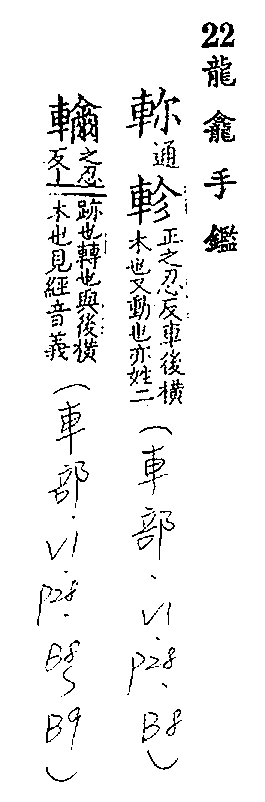 22龍龕手鑑
䡩通軫正之忍反車後橫木也又動也亦姓二(車部.V1.P28.B8)
之忍反上跡也轉也與後橫木也見經音義(車部.V1.P28.B8~B9)